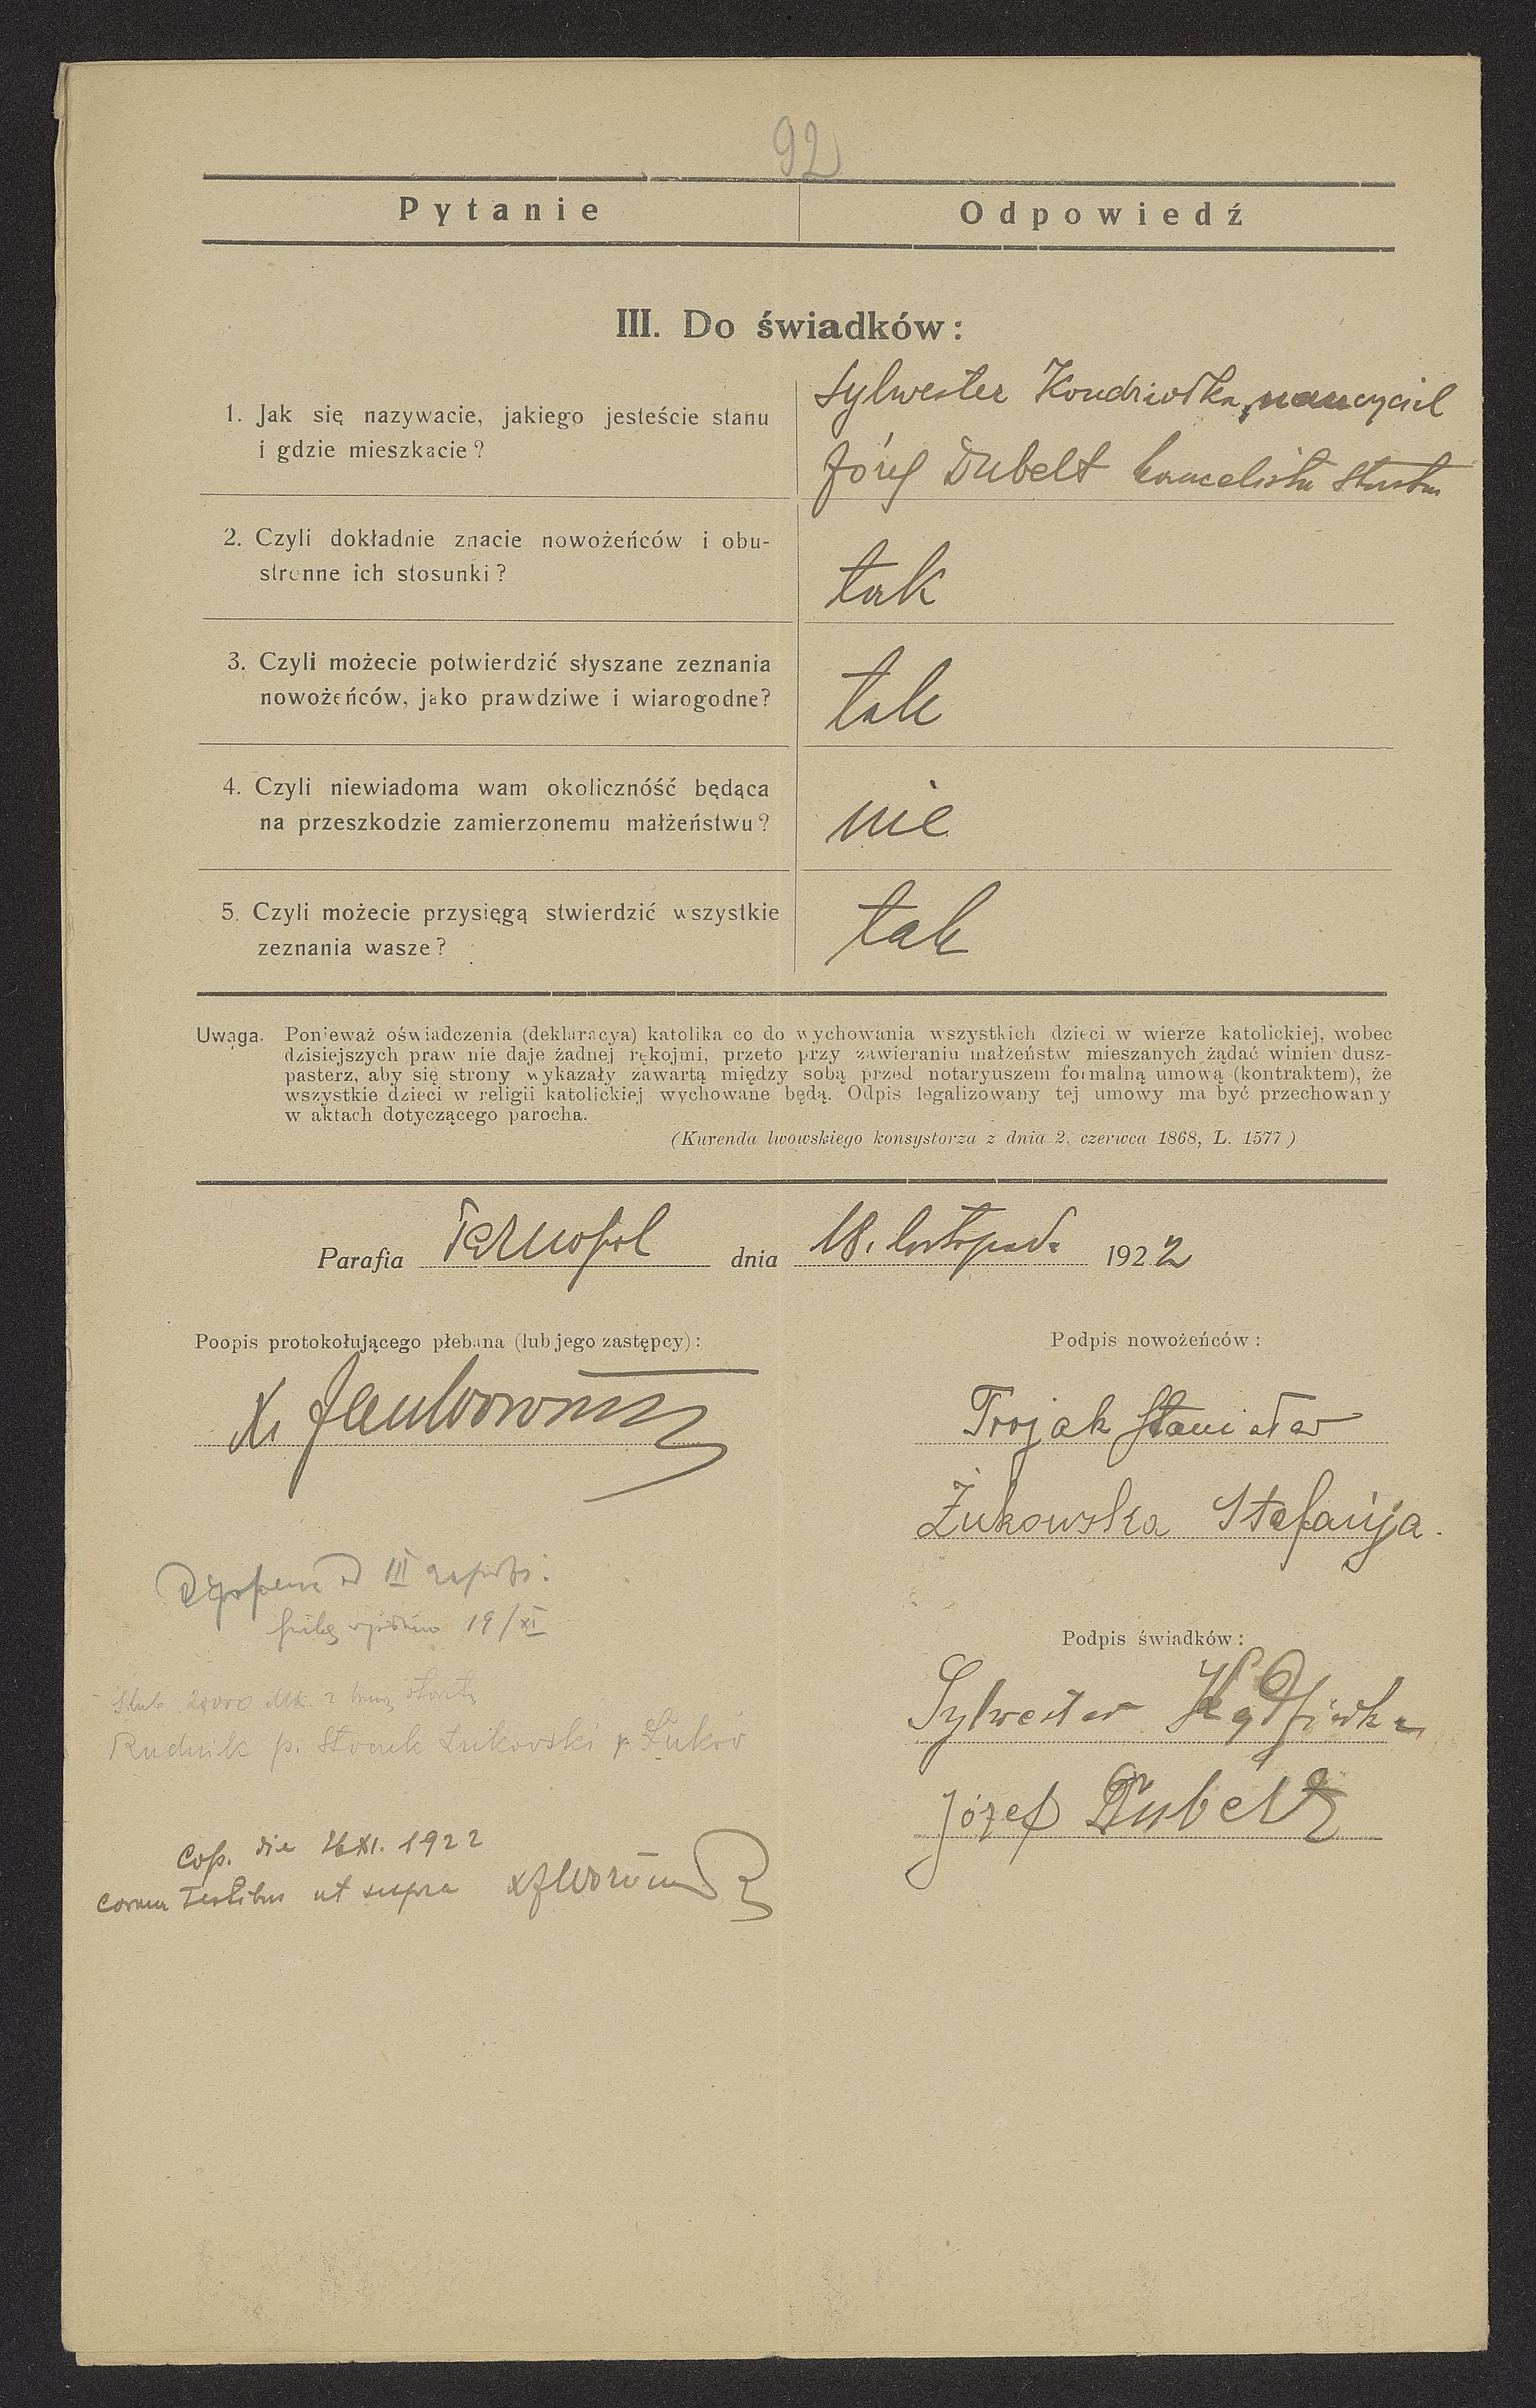 92
Pytanie
Odpowiedź
III. Do świadków:
1. Jak się nazywacie, jakiego jesteście stanu
i gdzie mieszkacie?
Sylwester Kondziołka, nauczyciel
Józef Dubelt kancelista
2. Czyli dokładnie znacie nowożeńców i obu-
stronne ich stosunki?
tak
3. Czyli możecie potwierdzić słyszane zeznania
nowożeńców, jako prawdziwe i wiarogodne?
tak
4. Czyli niewiadoma wam okolicznóść będąca
na przeszkodzie zamierzonemu małżeństwu?
nie
5. Czyli możecie przysięgą stwierdzić wszystkie
zeznania wasze?
tak
Uwaga. Ponieważ oświadczenia (deklaracya) katolika co do wychowania wszystkich dzieci w wierze katolickiej, wobec
dzisiejszych praw nie daje żadnej rękojmi, przeto przy zawieraniu małżeństw mieszanych żądać winien dusz-
pasterz, aby się strony wykazały zawartą między sobą przed notaryuszem formalną umową (kontraktem), że
wszystkie dzieci w religii katolickiej wychowane będą. Odpis legalizowany tej umowy ma być przechowany
w aktach dotyczącego parocha.
(Kurenda lwowskiego konsystorza z dnia 2. czerwca 1868, L. 1577)
Parafia Tarnopol dnia 18. listopada 1922
Poopis protokołującego plebana (lub jego zastępcy):
Podpis nowożeńców:
X.
Trojak Stanisław
Żukowska Stefanja.
III zapowiedzi
19/XI
Podpis świadków:
Ślub 20000 Mk. z
Sylwester
Rudnik p. Stanek Żukowski p. Żuków
Józef Dubelt
Cop. die XI. 1922
coram testibus ut supra